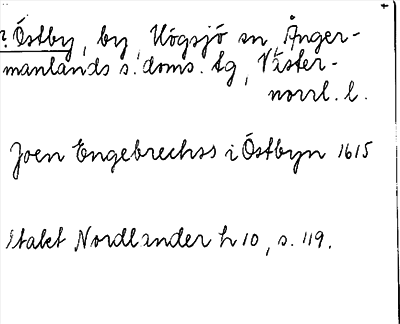 Östby, by, Högsjö sn, Ånger-
manlands s. doms. tg, Väster-
norrl. l.
Joen Engebrechss i Östbyn 1615
Stakt Nordlander h 10, s. 119.